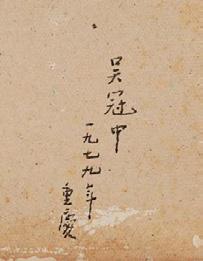 吴冠中
一九七九年
重慶